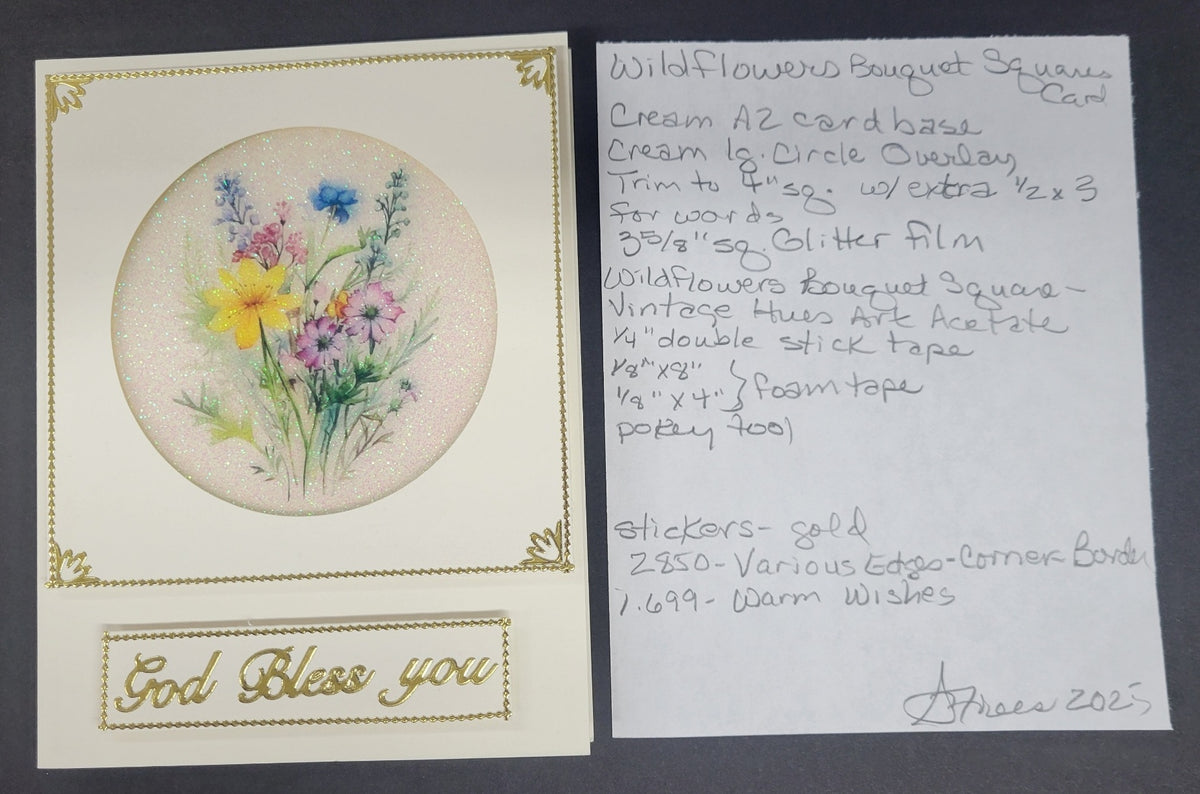 God Bless you
Wildflowers Bouquet Squares
Card
Cream A2 cardbase
Cream lg. Circle Overlay
Trim to 4" sq. w/ extra 1/2 x 3
for words
3 5/8" sq. Glitter Film
Wildflowers Bouquet Square-
Vintage Hues Art Acetate
1/4" double stick tape
1/8" x 8"
1/8" x 4" } foam tape
pokey tool
stickers- gold
2850- Various Edges-Corner-Border
1.699- Warm Wishes
2025